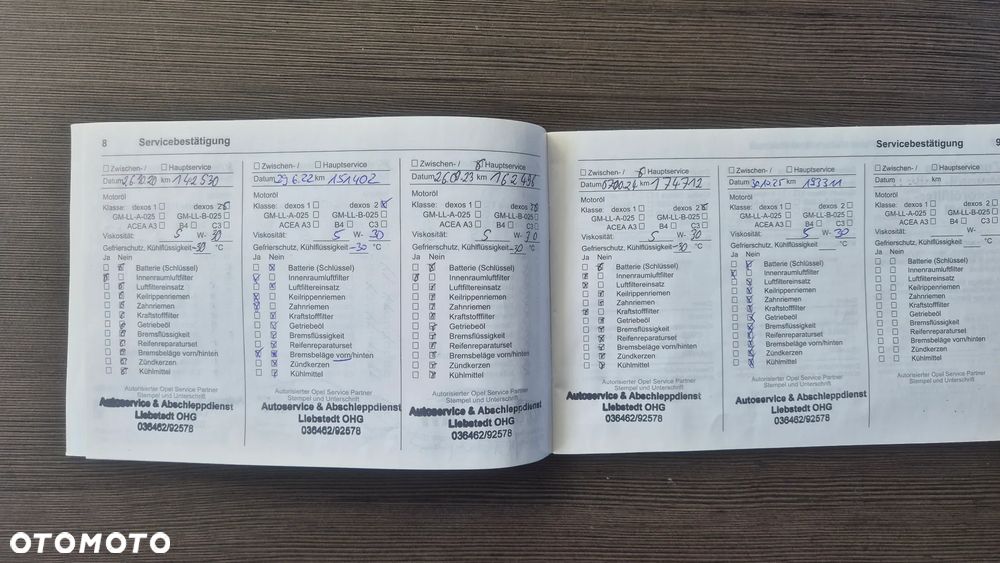 8 Servicebestätigung
Zwischen- / Hauptservice
Datum 26.10.20 km 142530
Motoröl
Klasse: dexos 1 dexos 2
GM-LL-A-025 GM-LL-B-025
ACEA A3 B4 C3
Viskosität: 5 W- 30
Gefrierschutz, Kühlflüssigkeit -30 °C
Ja Nein
Batterie (Schlüssel)
Innenraumluftfilter
Luftfiltereinsatz
Keilrippenriemen
Zahnriemen
Kraftstofffilter
Getriebeöl
Bremsflüssigkeit
Reifenreparaturset
Bremsbeläge vorn/hinten
Zündkerzen
Kühlmittel
Autorisierter Opel Service Partner
Stempel und Unterschrift
Autoservice & Abschleppdienst
Liebstedt OHG
036462/92578
Zwischen- / Hauptservice
Datum 29.6.22 km 151402
Motoröl
Klasse: dexos 1 dexos 2
GM-LL-A-025 GM-LL-B-025
ACEA A3 B4 C3
Viskosität: 5 W- 30
Gefrierschutz, Kühlflüssigkeit -30 °C
Ja Nein
Batterie (Schlüssel)
Innenraumluftfilter
Luftfiltereinsatz
Keilrippenriemen
Zahnriemen
Kraftstofffilter
Getriebeöl
Bremsflüssigkeit
Reifenreparaturset
Bremsbeläge vorn/hinten
Zündkerzen
Kühlmittel
Autorisierter Opel Service Partner
Stempel und Unterschrift
Autoservice & Abschleppdienst
Liebstedt OHG
036462/92578
Zwischen- / Hauptservice
Datum km
Motoröl
Klasse: dexos 1 dexos 2
GM-LL-A-025 GM-LL-B-025
ACEA A3 B4 C3
Viskosität: 5 W- 30
Gefrierschutz, Kühlflüssigkeit -30 °C
Ja Nein
Batterie (Schlüssel)
Innenraumluftfilter
Luftfiltereinsatz
Keilrippenriemen
Zahnriemen
Kraftstofffilter
Getriebeöl
Bremsflüssigkeit
Reifenreparaturset
Bremsbeläge vorn/hinten
Zündkerzen
Kühlmittel
Autorisierter Opel Service Partner
Stempel und Unterschrift
Autoservice & Abschleppdienst
Liebstedt OHG
036462/92578
Servicebestätigung 9
Zwischen- / Hauptservice
Datum km 174712
Motoröl
Klasse: dexos 1 dexos 2
GM-LL-A-025 GM-LL-B-025
ACEA A3 B4 C3
Viskosität: 5 W- 30
Gefrierschutz, Kühlflüssigkeit -30 °C
Ja Nein
Batterie (Schlüssel)
Innenraumluftfilter
Luftfiltereinsatz
Keilrippenriemen
Zahnriemen
Kraftstofffilter
Getriebeöl
Bremsflüssigkeit
Reifenreparaturset
Bremsbeläge vorn/hinten
Zündkerzen
Kühlmittel
Autorisierter Opel Service Partner
Stempel und Unterschrift
Autoservice & Abschleppdienst
Liebstedt OHG
036462/92578
Zwischen- / Hauptservice
Datum 30.10.25 km 193311
Motoröl
Klasse: dexos 1 dexos 2
GM-LL-A-025 GM-LL-B-025
ACEA A3 B4 C3
Viskosität: 5 W- 30
Gefrierschutz, Kühlflüssigkeit °C
Ja Nein
Batterie (Schlüssel)
Innenraumluftfilter
Luftfiltereinsatz
Keilrippenriemen
Zahnriemen
Kraftstofffilter
Getriebeöl
Bremsflüssigkeit
Reifenreparaturset
Bremsbeläge vorn/hinten
Zündkerzen
Kühlmittel
Autorisierter Opel Service Partner
Stempel und Unterschrift
Autoservice & Abschleppdienst
Liebstedt OHG
036462/92578
Zwischen- / Hauptservice
Datum km
Motoröl
Klasse: dexos 1 dexos 2
GM-LL-A-025 GM-LL-B-025
ACEA A3 B4 C3
Viskosität: W-
Gefrierschutz, Kühlflüssigkeit °C
Ja Nein
Batterie (Schlüssel)
Innenraumluftfilter
Luftfiltereinsatz
Keilrippenriemen
Zahnriemen
Kraftstofffilter
Getriebeöl
Bremsflüssigkeit
Reifenreparaturset
Bremsbeläge vorn/hinten
Zündkerzen
Kühlmittel
Autorisierter Opel Service Partner
Stempel und Unterschrift
OTOMOTO